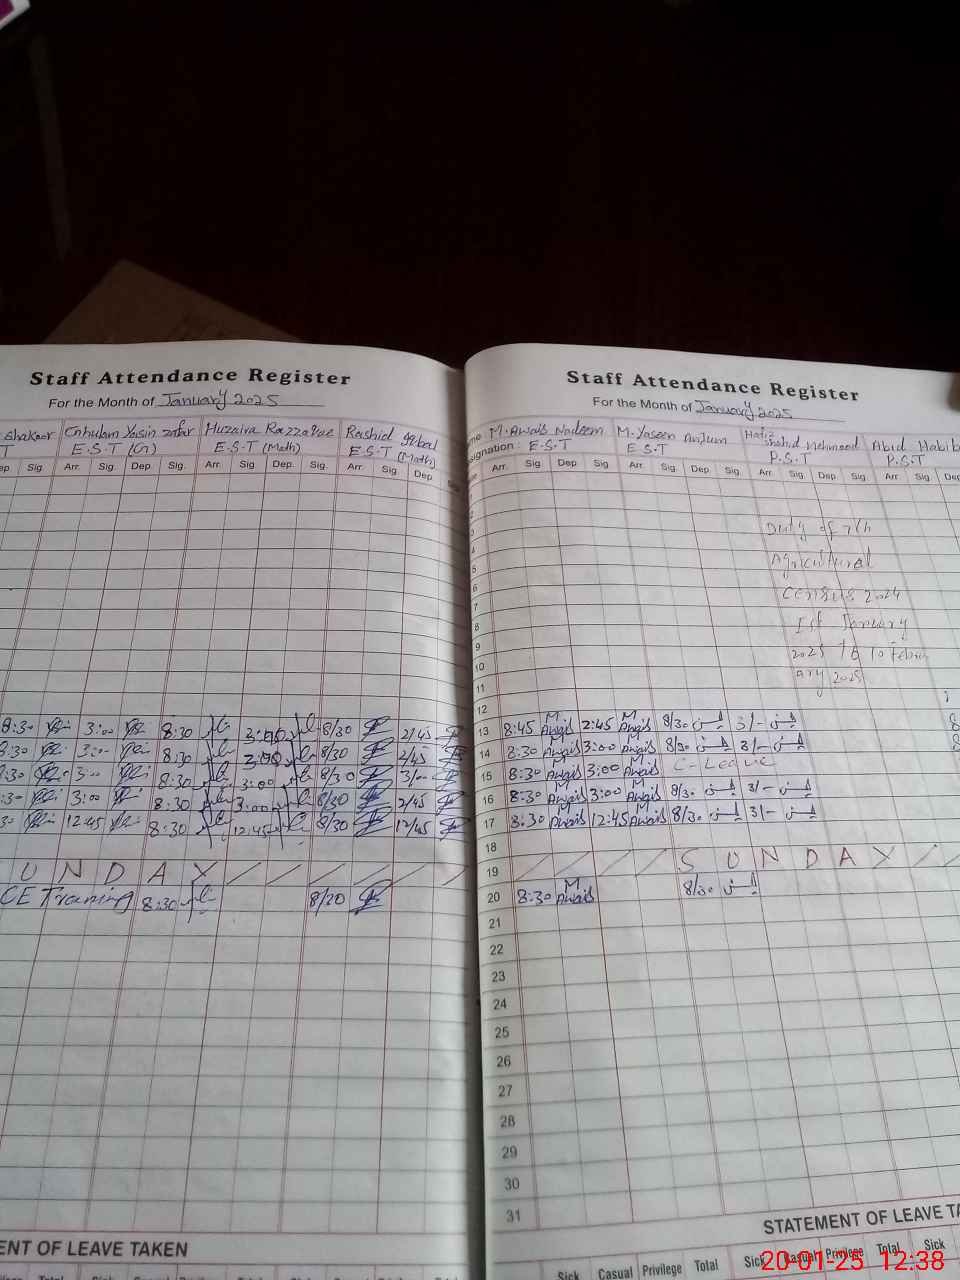 Staff Attendance Register
For the Month of January 2025
Shakoor Ghulam Yasin zafar Huzaifa Razzaq Rashid Iqbal
T E.S.T (Gr) E.S.T (Math) E.S.T (Math)
Dep. Sig. Arr. Sig. Dep. Sig. Arr. Sig. Dep. Sig. Arr. Sig. Dep. Sig.
8:30 3:00 8:30 3:00 8/30 2/45
8:30 3:00 8:30 3:00 8/30 2/45
8:30 3:00 8:30 3:00 8/30 3/-
:30 3:00 8:30 3:00 8/30 2/45
30 12:45 8:30 12:45 8/30 12/45
U N D A Y
CE Training 8:30 8/20
ENT OF LEAVE TAKEN
Privilege Total Sick Casual Privilege Total
Staff Attendance Register
For the Month of January 2025
M. Awais Nadeem M. Yaseen Anjum Hafiz Shahid Mehmood Abid Habib
signation : E.S.T E.S.T P.S.T P.S.T
Arr. Sig. Dep. Sig. Arr. Sig. Dep. Sig. Arr. Sig. Dep. Sig. Arr. Sig. Dep
1
2
3 Duty of 7th
4 Agricultural
5
6 Census 2024
7 1st January
8 2025 to 10 Febru
9 ary 2025
10
11
12
13 8:45 M. Awais 2:45 M. Awais 8/30 3/-
14 8:30 M. Awais 3:00 M. Awais 8/30 3/-
15 8:30 M. Awais 3:00 M. Awais C-Leave
16 8:30 M. Awais 3:00 M. Awais 8/30 3/-
17 8:30 M. Awais 12:45 M. Awais 8/30 3/-
18
19 S U N D A Y
20 8:30 M. Awais 8/30
21
22
23
24
25
26
27
28
29
30
31
STATEMENT OF LEAVE TA
Sick Casual Privilege Total Sick Casual Privilege Total Sick
20-01-25 12:38